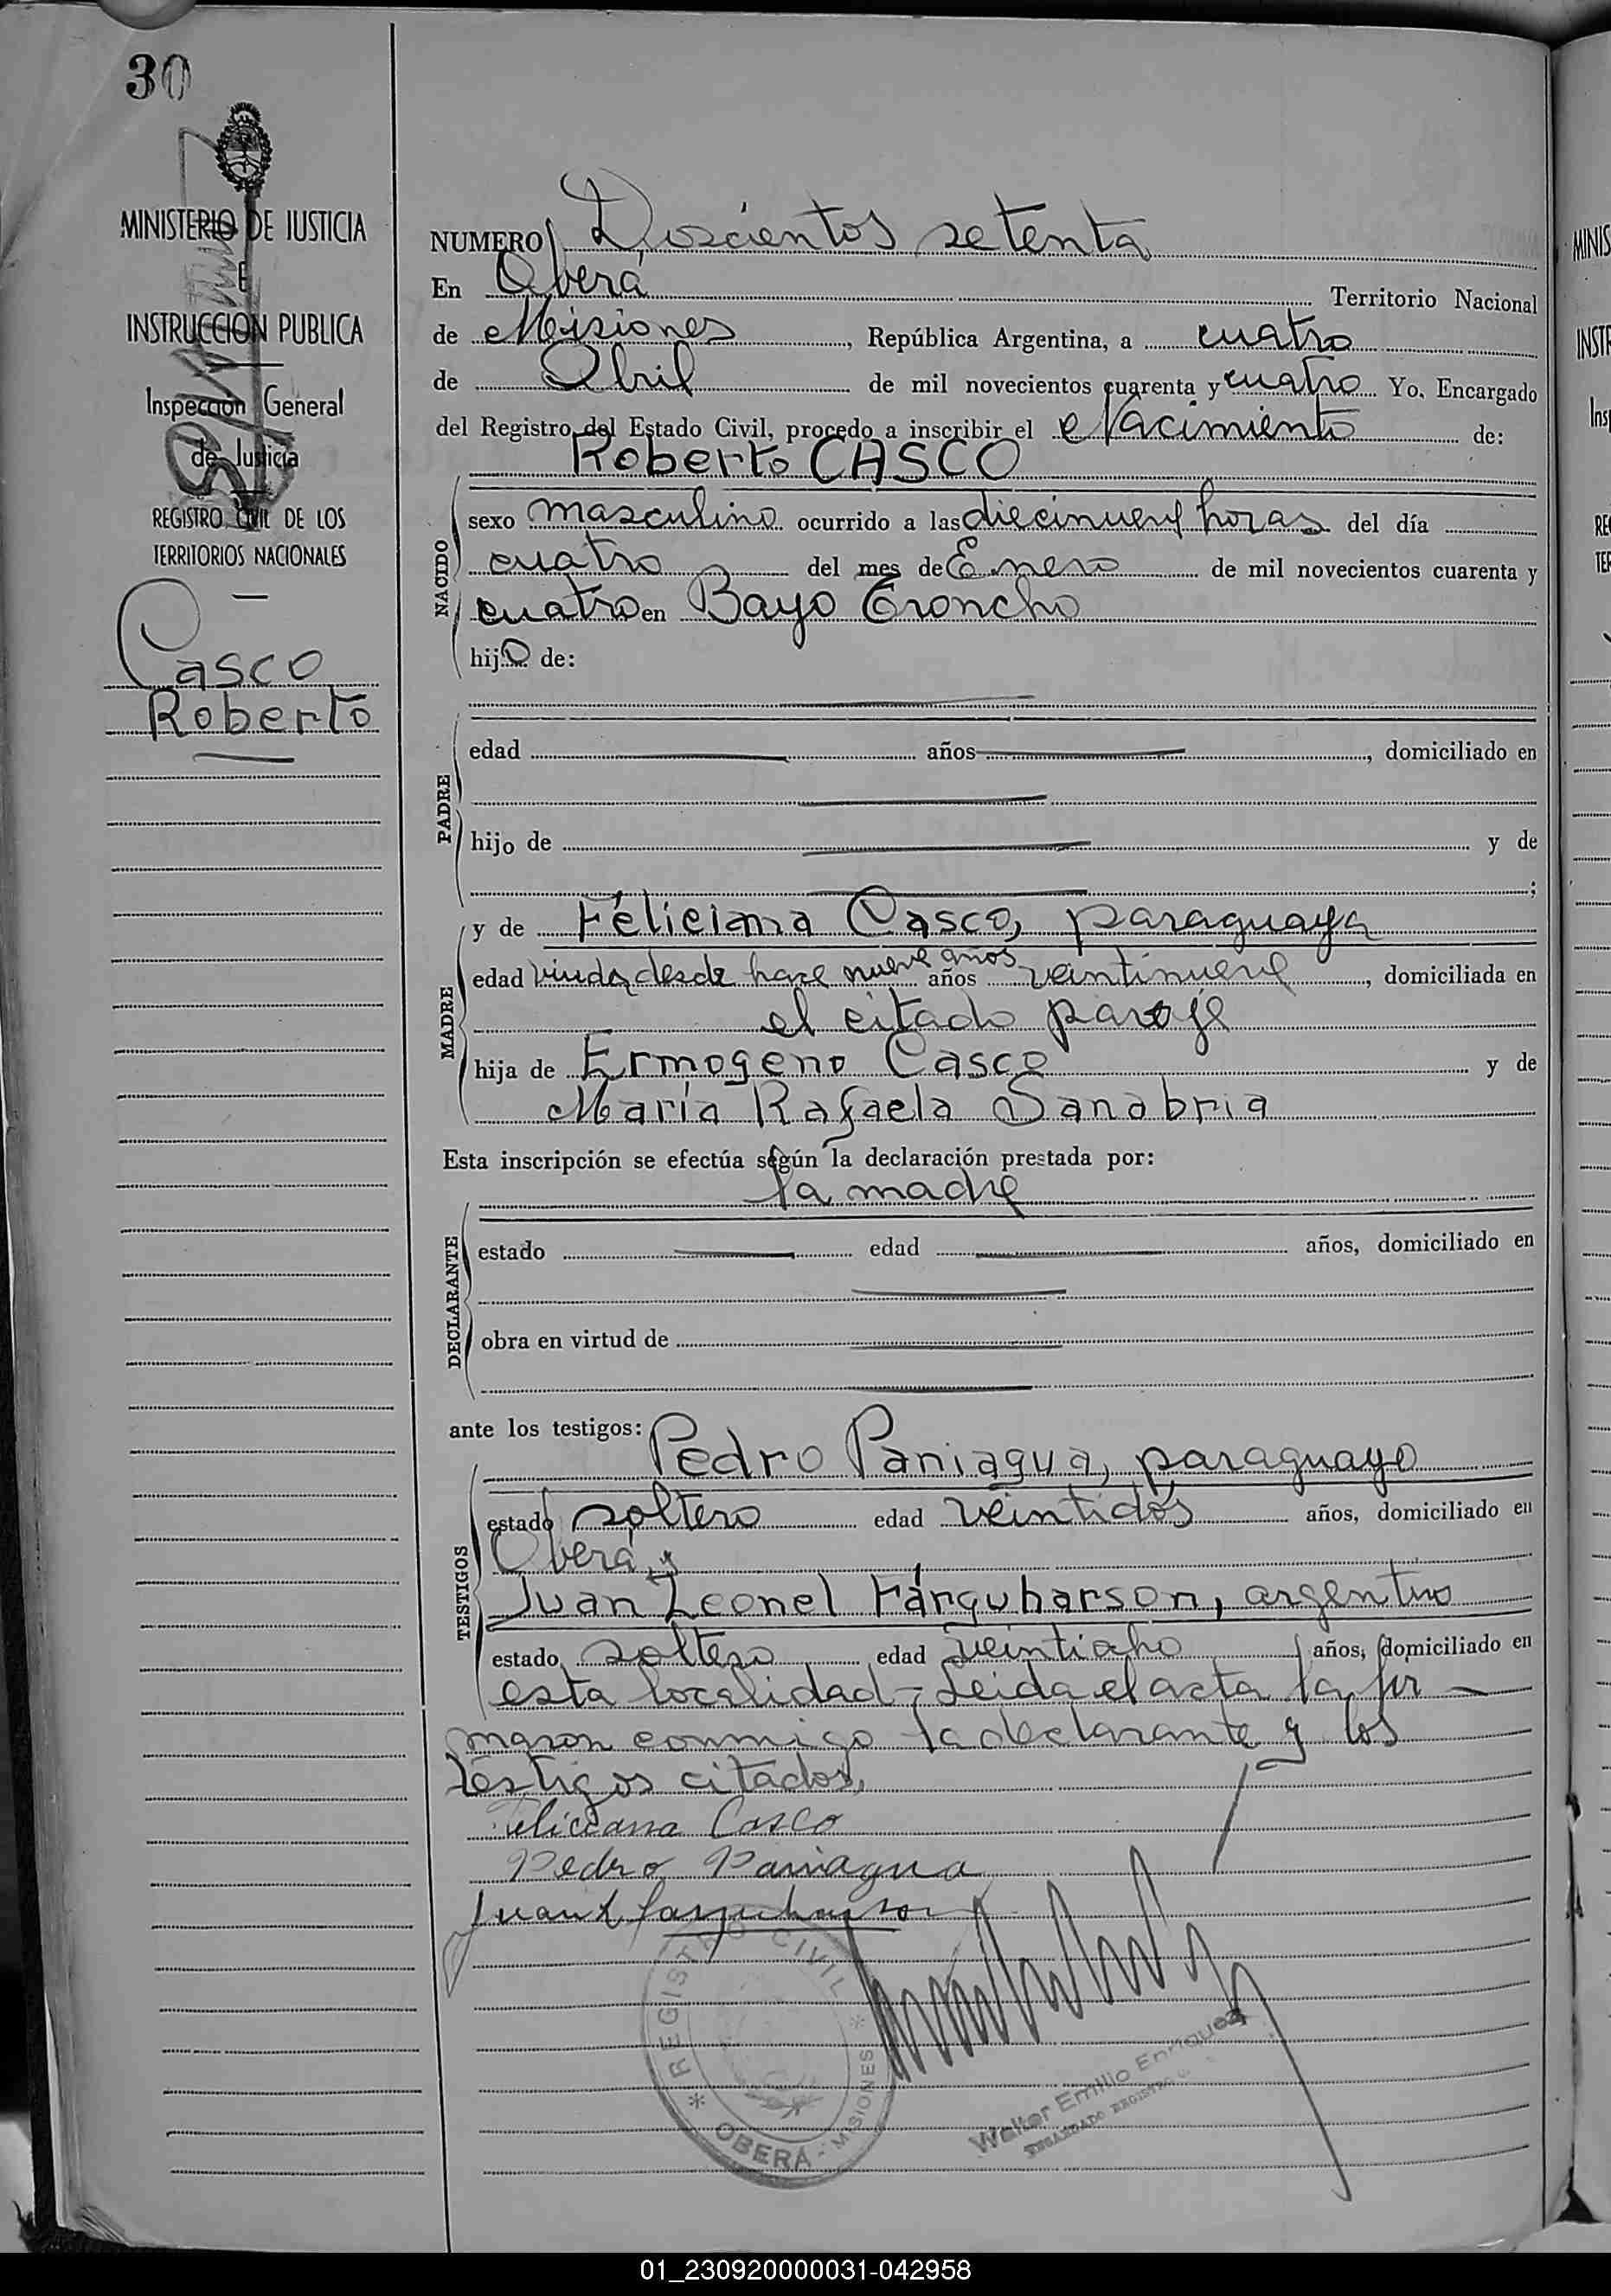 30
MINISTERIO DE JUSTICIA
E
INSTRUCCION PUBLICA
Inspección General
de Justicia
REGISTRO CIVIL DE LOS
TERRITORIOS NACIONALES
Casco
Roberto
NUMERO Doscientos setenta
En Oberá Territorio Nacional
de Misiones, República Argentina, a cuatro
de Abril de mil novecientos cuarenta y cuatro Yo, Encargado
del Registro del Estado Civil, procedo a inscribir el Nacimiento de:
Roberto CASCO
NACIDO
sexo masculino ocurrido a las diecinueve horas del día
cuatro del mes de Enero de mil novecientos cuarenta y
cuatro en Bayo Troncho
hijo de:
PADRE
edad años, domiciliado en
hijo de y de
;
MADRE
y de Feliciana Casco, paraguaya
edad viuda desde hace nueve años años veintinueve, domiciliada en
el citado paraje
hija de Ermogeno Casco y de
María Rafaela Sanabria
Esta inscripción se efectúa según la declaración prestada por:
la madre
DECLARANTE
estado edad años, domiciliado en
obra en virtud de
ante los testigos:
Pedro Paniagua, paraguayo
TESTIGOS
estado soltero edad veintidós años, domiciliado en
Oberá y
Juan Leonel Fárquharson, argentino
estado soltero edad veintiocho años, domiciliado en
esta localidad - Leida el acta la fir-
maron conmigo la declarante y los
testigos citados,
Feliciana Casco
Pedro Paniagua
Juan L Farquharson
* REGISTRO CIVIL * OBERÁ - MISIONES
Walter Emilio Enriquez
ENCARGADO REGISTRO
01_230920000031-042958